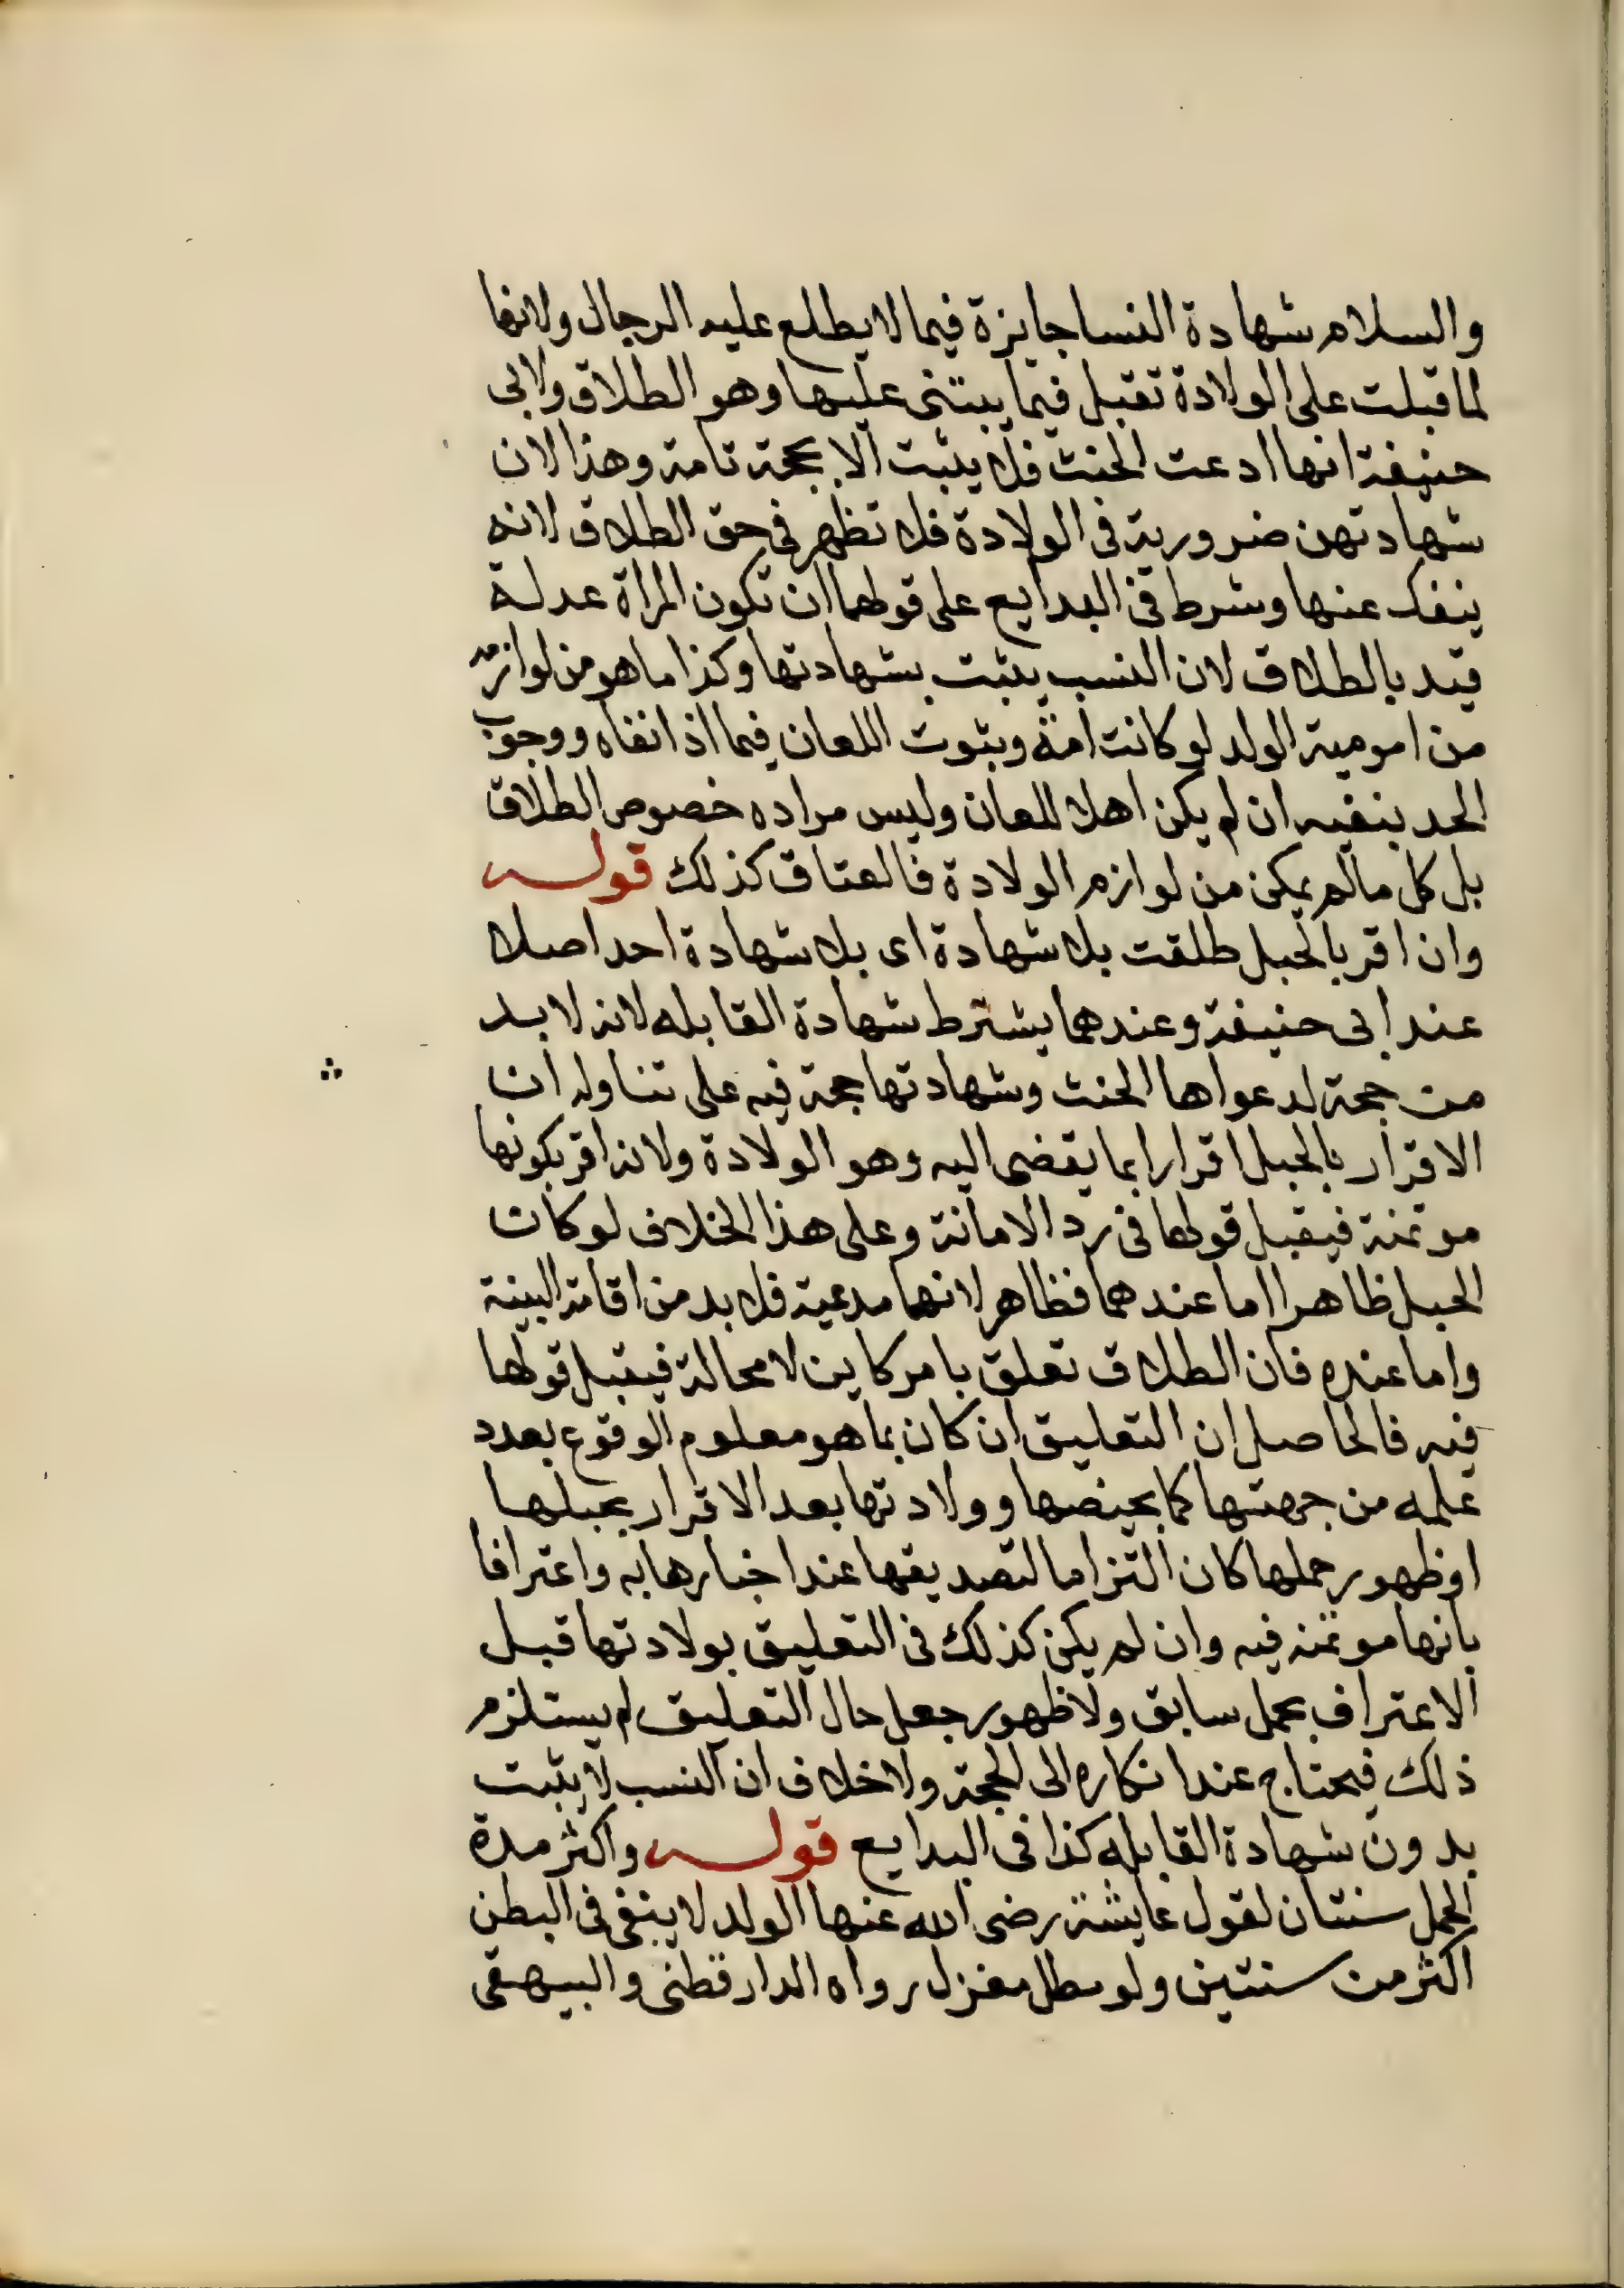 والسلام شهادة النسا جايزة فيما لا يطلع عليه الرجال ولانها
لما قبلت على الولادة تقبل فيما يبتنى عليها وهو الطلاق ولابى
حنيفة انها ادعت الحنث فلا يثبت الا بحجة تامة وهذا لان
شهادتهن ضرورية فى الولادة فلا تظهر فى حق الطلاق لانه
ينفك عنها وشرط فى البدايع على قولهما ان تكون المراة عدلة
قيد بالطلاق لان النسب يثبت بشهادتها وكذا ما هو من لوازمه
من امومية الولد لو كانت امة وثبوت اللعان فيما اذا نفاه ووجوب
الحد بنفيه ان لم يكن اهلا للعان وليس مراده خصوص الطلاق
بل كل مالم يكن من لوازم الولادة فالعتاق كذلك قوله
وان اقر بالحبل طلقت بلا شهادة اى بلا شهادة احد اصلا
عند ابى حنيفة وعندهما يشترط شهادة القابله لانه لا بد
من حجة لدعواها الحنث وشهادتها حجة فيه على تناوله ان
الاقرار بالحبل اقرار بما يفضى اليه وهو الولادة ولانه اقر بكونها
موتمنة فيقبل قولها فى رد الامانة وعلى هذا الخلاف لو كان
الحبل ظاهرا اما عندهما فظاهر لانها مدعية فلا بد من اقامة البينة
واما عنده فان الطلاق تعلق بامر كاين لا محالة فيقبل قولها
فيه فالحاصل ان التعليق ان كان بما هو معلوم الوقوع بعدد
علمه من جهتها كما بحيضها وولادتها بعد الاقرار بحبلها
او ظهور حملها كان التزاما لتصديقها عند اخبارها به واعترافا
بانها موتمنه فيه وان لم يكن كذلك فى التعليق بولادتها قبل
الاعتراف بحمل سابق ولا ظهور جعل حال التعليق لم يستلزم
ذلك فيحتاج عند انكاره الى الحجة ولا خلاف ان النسب لا يثبت
بدون شهادة القابله كذا فى البدايع قوله واكثر مدة
الحمل سنتان لقول عايشة رضى الله عنها الولد لا يبقى فى البطن
اكثر من سنتين ولو بظل مغزل رواه الدارقطنى والبيهقى